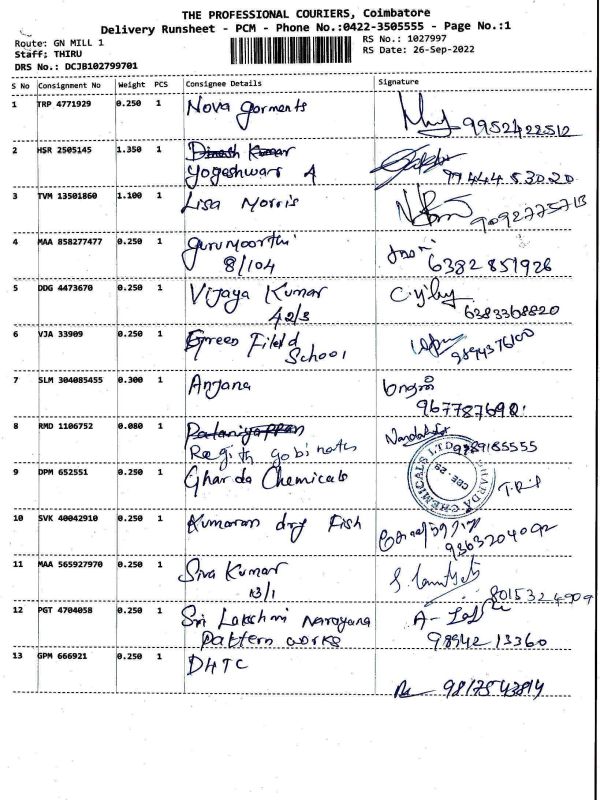 THE PROFESSIONAL COURIERS, Coimbatore
Delivery Runsheet - PCM - Phone No.:0422-3505555 - Page No.:1
Route: GN MILL 1
RS No.: 1027997
Staff: THIRU
RS Date: 26-Sep-2022
DRS No.: DCJB102799701
S No Consignment No Weight PCS Consignee Details Signature
1 TRP 4771929 0.250 1 Nova garments
9952422512
2 HSR 2505145 1.350 1 Dinesh Kumar
Yogeshwari A
99444 53020
3 TVM 13501860 1.100 1 Lisa Morris
9092775713
4 MAA 858277477 0.250 1 Gurumoorthi
8/104 6382851926
5 DDG 4473670 0.250 1 Vijaya Kumar
42/3 6383368820
6 VJA 33909 0.250 1 Green Field
School 9894376100
7 SLM 304085455 0.300 1 Anjana
967787690
8 RMD 1106752 0.080 1 Palaniyappan
Ragith gobinath 9789185555
9 DPM 652551 0.250 1 Gharda Chemicals
GHARDA CHEMICALS LTD
10 SVK 40042910 0.250 1 Kumaran dry Fish
9363204092
11 MAA 565927970 0.250 1 Siva Kumar
13/1 8015324909
12 PGT 4704058 0.250 1 Sri Lakshmi Narayana
Pattern works 98942 13360
13 GPM 666921 0.250 1 DHTC
9817543814